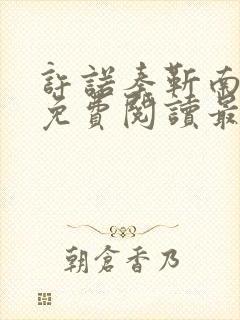 許諾秦靳南
免費閱讀最
朝倉香乃